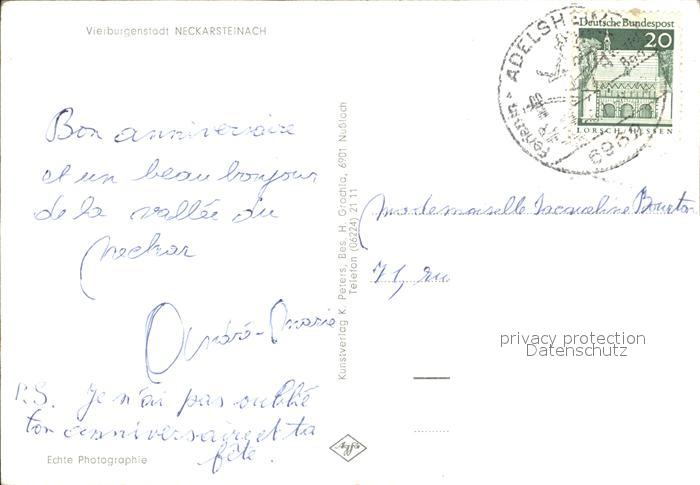 Vierburgenstadt NECKARSTEINACH
Bon anniversaire
et un beau bonjour
de la vallée du
Neckar
André-Marie
P.S. Je n'ai pas oublié
ton anniversaire et ta
fête.
Echte Photographie
Kunstverlag K. Peters, Bes. H. Grochla, 6901 Nußloch
Telefon (06224) 21 11
Agfa
ADELSHEIM
6962
Deutsche Bundespost
20
LORSCH/HESSEN
Mademoiselle Jacqueline
71, rue
privacy protection
Datenschutz